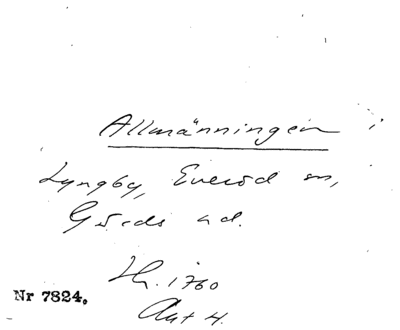 Allmänningen i
Lyngby, Everöd sn,
Gärds hd.
Hr. 1760
Nr 7824.
Akt 4.